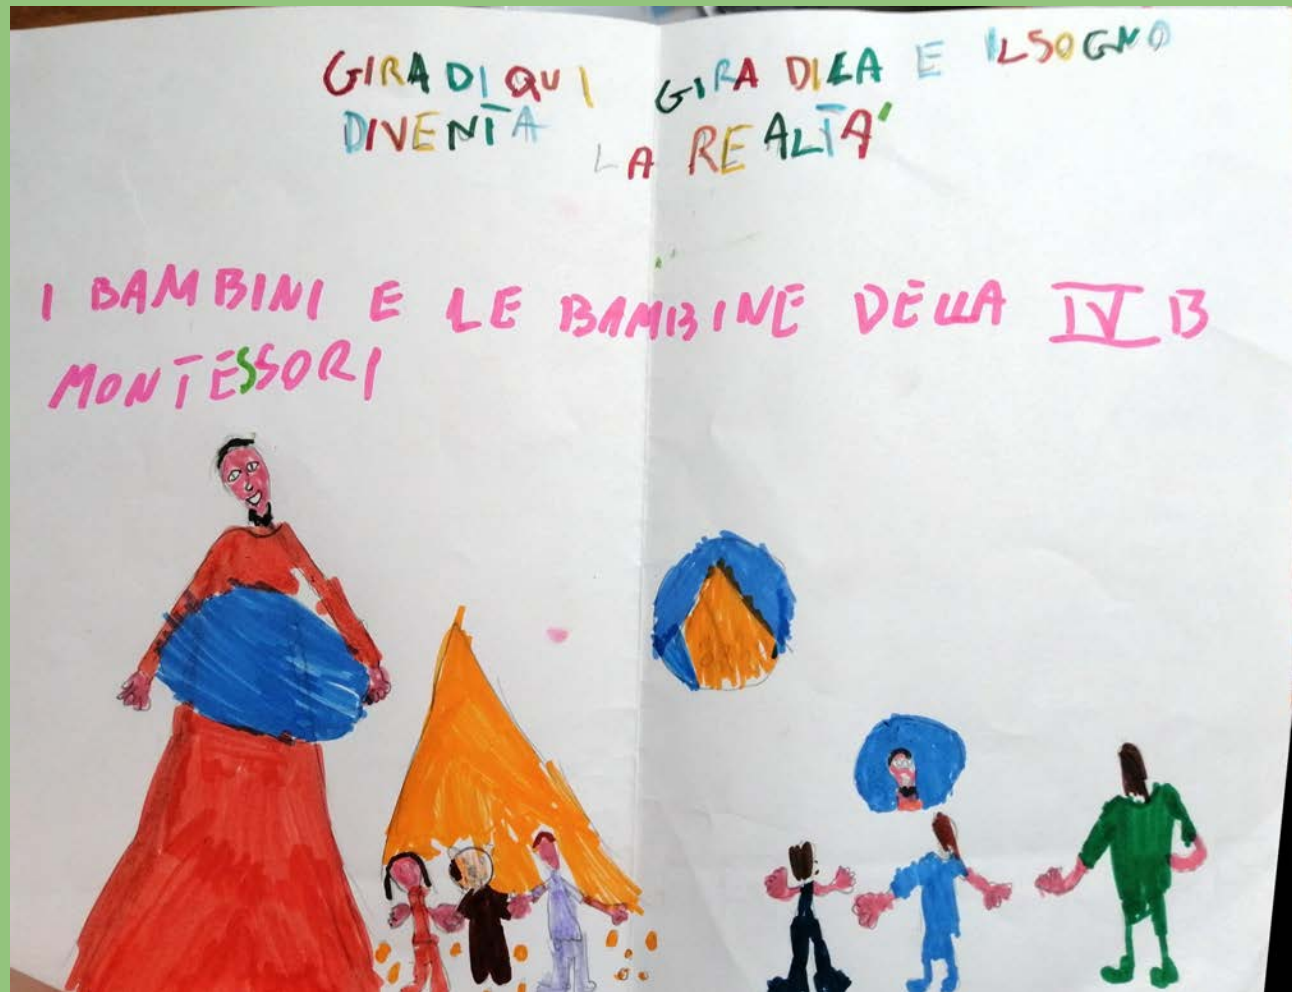 GIRA DI QUI GIRA DI LA E IL SOGNO
DIVENTA LA REALTA'
I BAMBINI E LE BAMBINE DELLA IV B
MONTESSORI